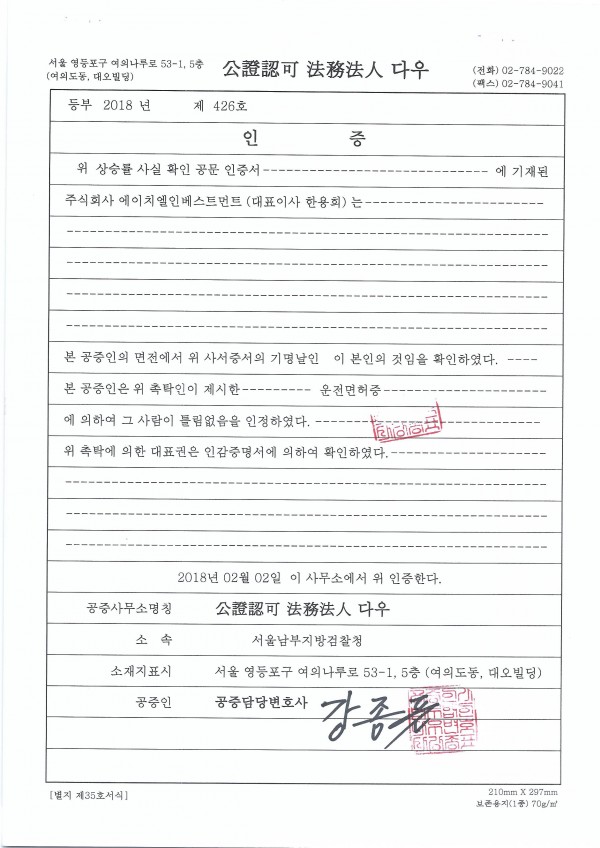 서울 영등포구 여의나루로 53-1, 5층
(여의도동, 대오빌딩)
公證認可 法務法人 다우
(전화) 02-784-9022
(팩스) 02-784-9041
등부 2018 년 제 426호
인 증
위 상승률 사실 확인 공문 인증서------------------------------ 에 기재된
주식회사 에이치엘인베스트먼트 (대표이사 한용희) 는------------------------
----------------------------------------------------------------
----------------------------------------------------------------
----------------------------------------------------------------
----------------------------------------------------------------
본 공증인의 면전에서 위 사서증서의 기명날인 이 본인의 것임을 확인하였다. ----
본 공증인은 위 촉탁인이 제시한--------- 운전면허증----------------------
에 의하여 그 사람이 틀림없음을 인정하였다. ------------------------------
위 촉탁에 의한 대표권은 인감증명서에 의하여 확인하였다.---------------------
----------------------------------------------------------------
----------------------------------------------------------------
----------------------------------------------------------------
2018년 02월 02일 이 사무소에서 위 인증한다.
공증사무소명칭 公證認可 法務法人 다우
소 속 서울남부지방검찰청
소재지표시 서울 영등포구 여의나루로 53-1, 5층 (여의도동, 대오빌딩)
공증인 공증담당변호사 강종
[별지 제35호서식]
210mm X 297mm
보존용지(1종) 70g/㎡